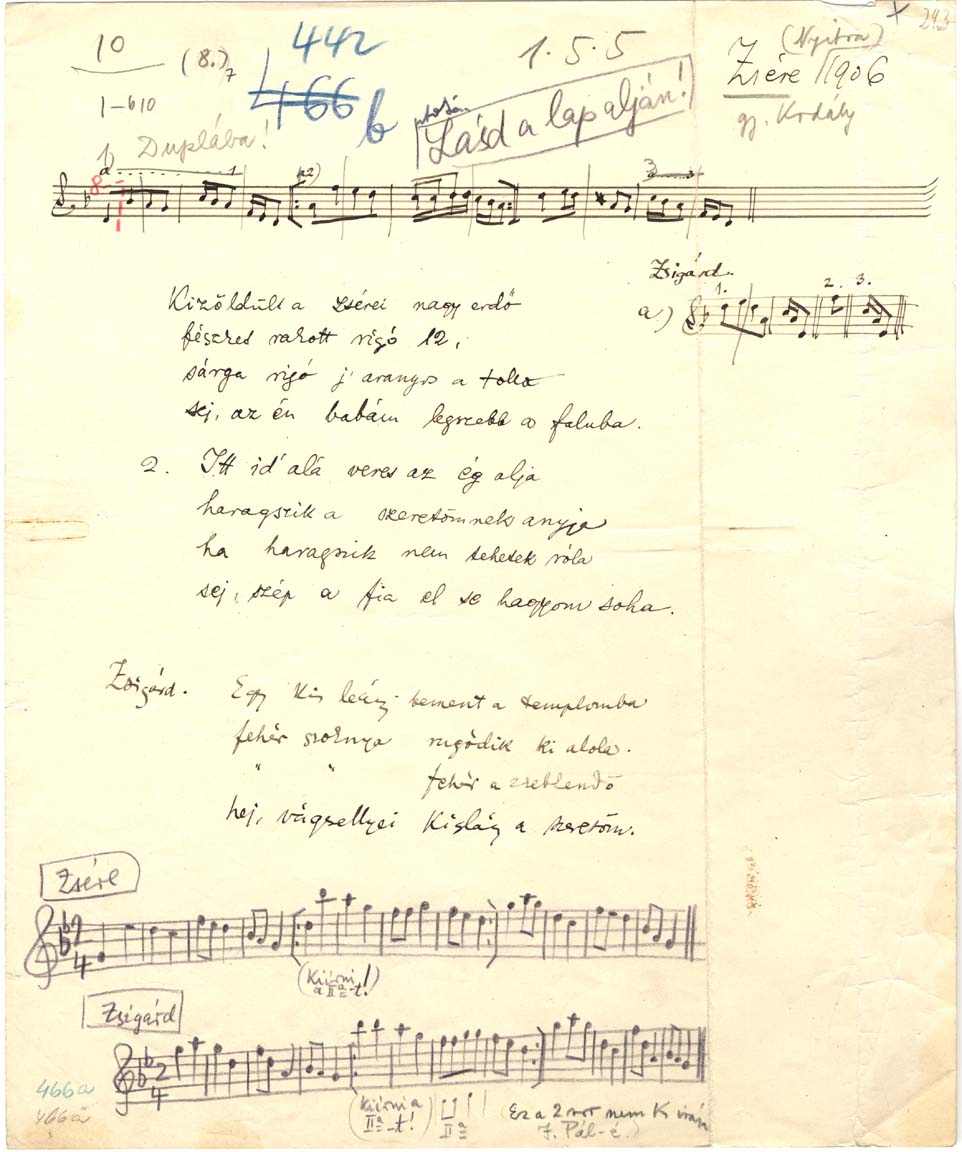 10
(8.)7
442
466 b
1 . 5 . 5
(Nyitra)
Zsére 1906
gj. Kodály
X 293
1–610
Duplába!
Lásd a lap alján!
8
Zsigárd.
a) 1. 2. 3.
Kizöldült a zsérei nagy erdő
fészket rakott rigó 12,
sárga rigó j' aranyos a tolla
sej, az én babám legszebb a faluba.
2. Itt id' alá veres az ég alja
haragszik a szeretőmnek anyja
ha haragszik nem tehetek róla
sej, szép a fia el se hagyom soha.
Zsigárd. Egy kis leány bement a templomba
fehér szoknya rugódik ki alola.
" " fehér a zsebkendő
hej, vágsellyei kislány a szeretőm.
Zsére
2
4
(Kiírni
a IIª-t!)
Zsigárd
2
4
466a
466a
(Kiírni a
IIª-t!)
IIª
Ez a 2 sor nem K irás
J. Pál-é.